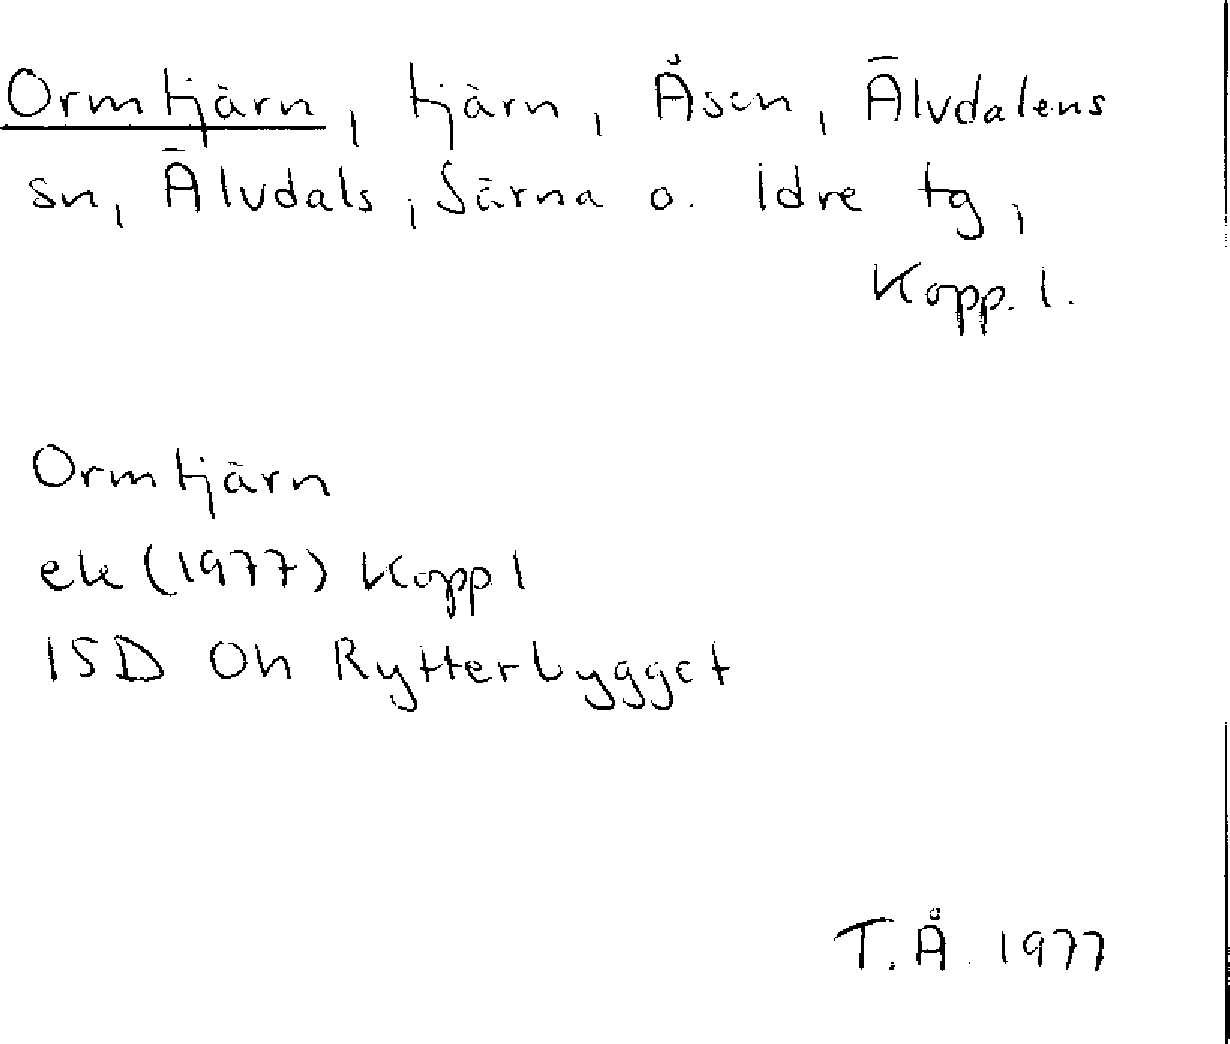 Ormtjärn, tjärn, Åsen, Älvdalens
sn, Älvdals, Särna o. Idre tg,
Kopp. l.
Ormtjärn
ek (1977) Kopp l
15D 0h Rytterbygget
T.Å. 1977